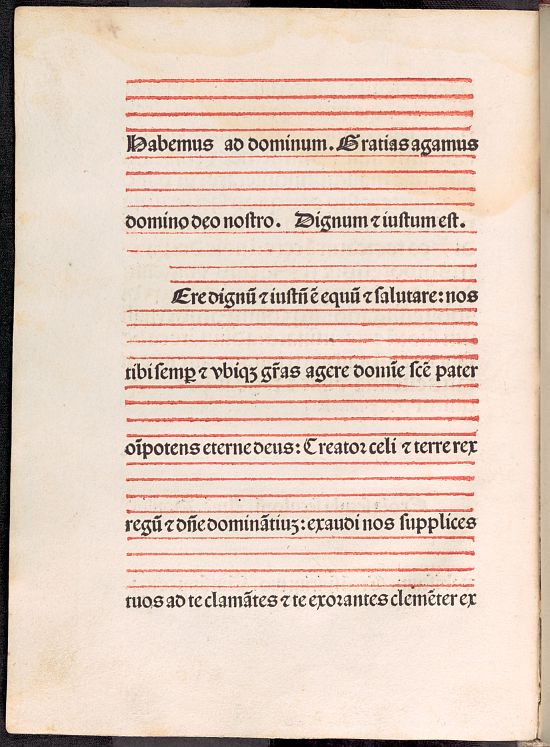 Habemus ad dominum. Gratias agamus
domino deo nostro. Dignum ⁊ iustum est.
Ere dignū ⁊ iustū ē equū ⁊ salutare: nos
tibi semꝑ ⁊ vbiqꝫ gr̄as agere domīe scē pater
oīpotens eterne deus: Creator celi ⁊ terre rex
regū ⁊ dn̄e dominātiuꝫ: exaudi nos supplices
tuos ad te clamātes ⁊ te exorantes clemēter ex